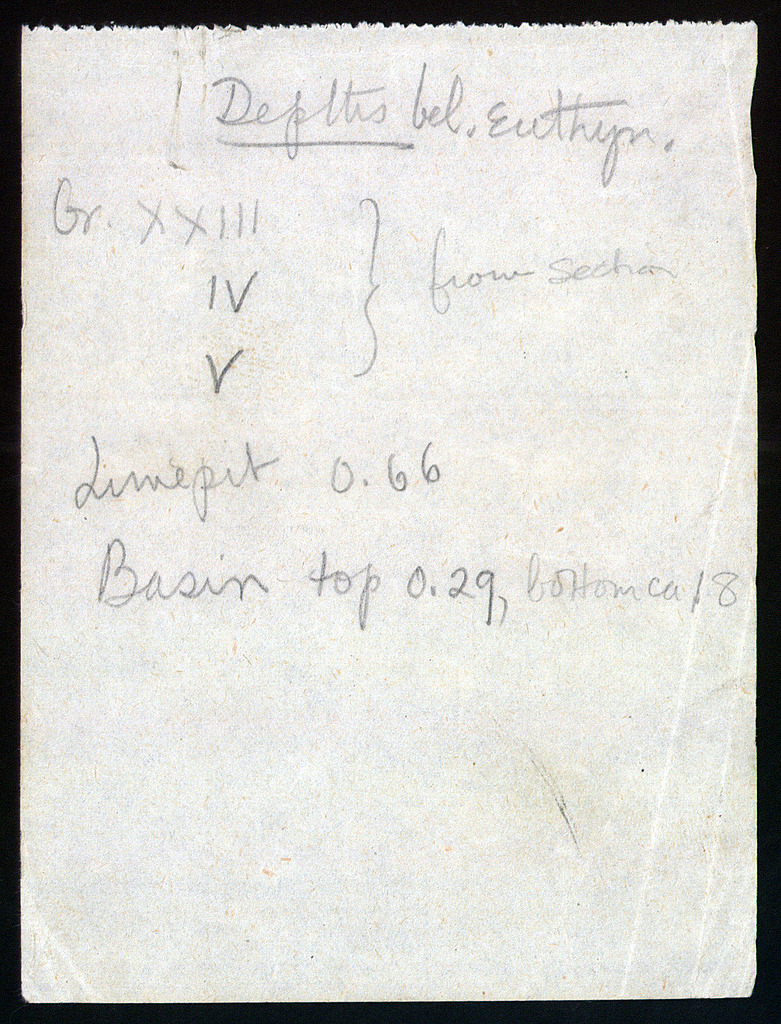 Depths bel. Euthyn.
Gr. XXIII
IV
V
} from section
Limepit 0.66
Basin top 0.29, bottom ca 1.8